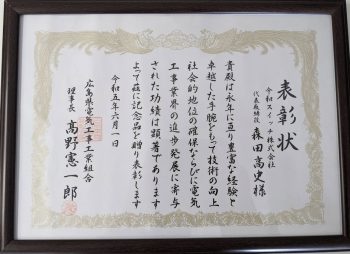 表彰状
令和スイッチ株式会社
代表取締役 森田高史様
貴殿は永年に亘り豊富な経験と
卓越した手腕をもって技術の向上
社会的地位の確保ならびに電気
工事業界の進歩発展に寄与
された功績は顕著であります
よって茲に記念品を贈り表彰します
令和五年六月一日
広島県電気工事工業組合
理事長 高野憲一郎